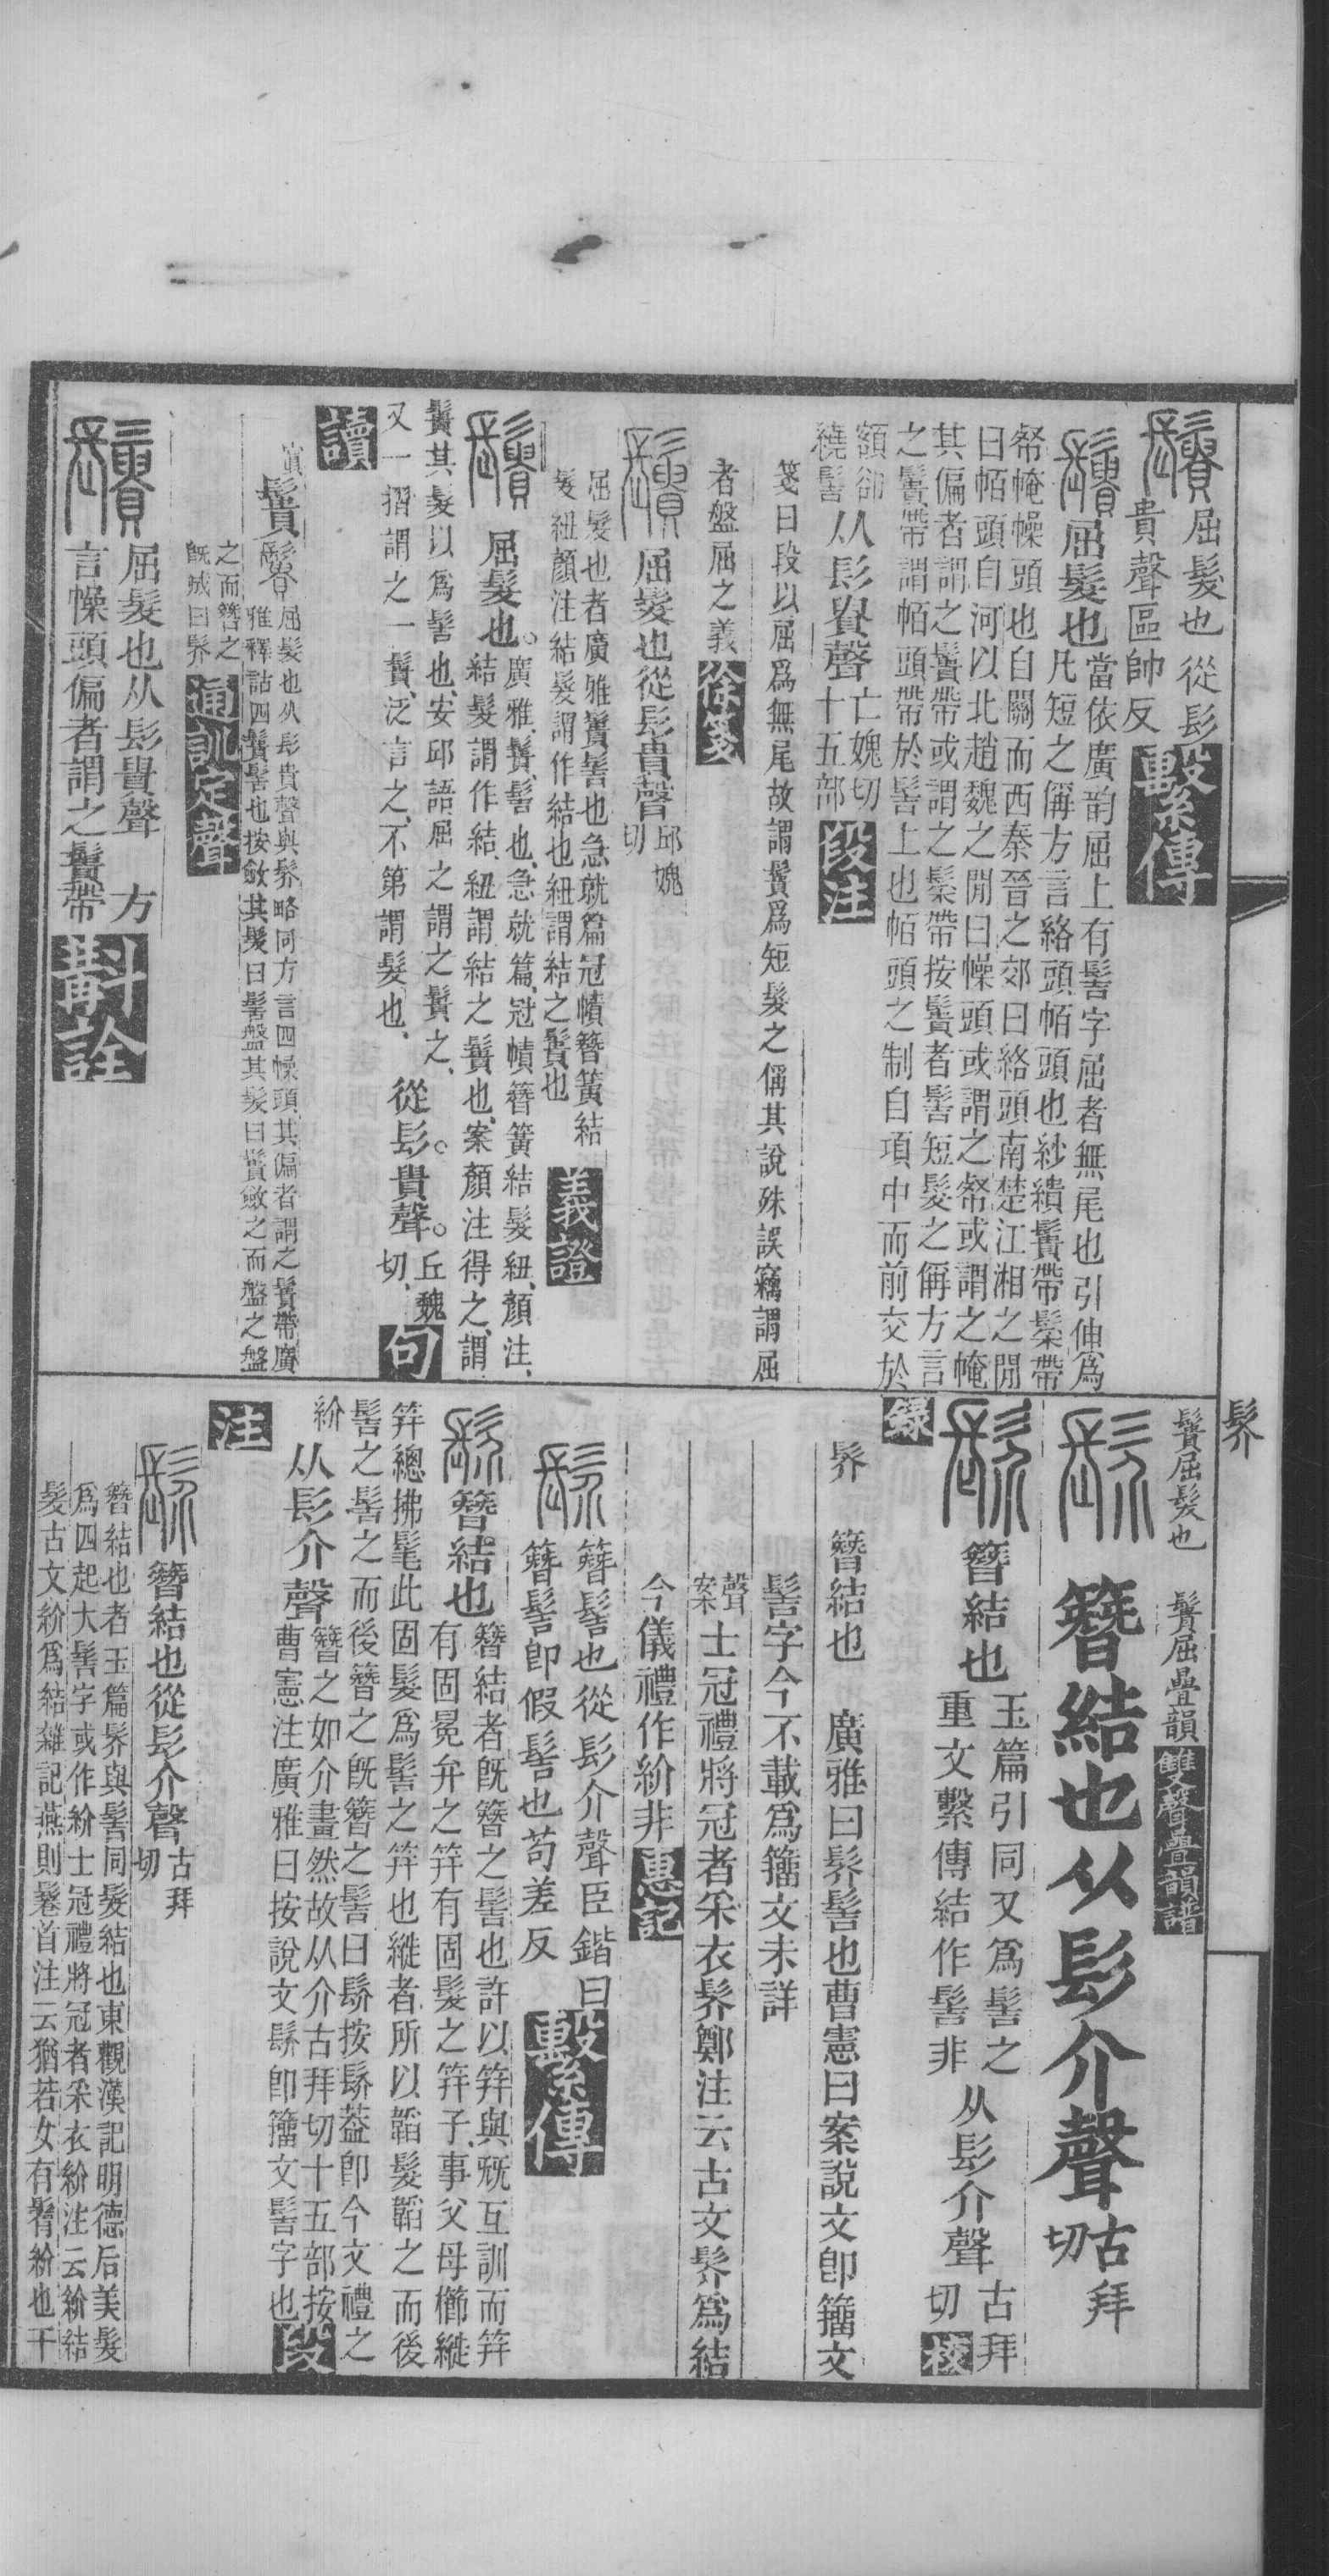 髺
屈髮也從髟
貴聲區帥反繫傳
屈髮也
當依廣韵屈上有髻字屈者無尾也引伸爲
凡短之偁方言絡頭帞頭也紗繢鬠帶䰂帶
帤㡋幧頭也自關而西秦晉之郊曰絡頭南楚江湘之閒
曰帞頭自河以北趙魏之閒曰幧頭或謂之帤或謂之㡋
其偏者謂之鬠帶或謂之䰂帶按鬠者髻短髮之偁方言
之鬠帶謂帞頭帶於髻上也帞頭之制自項中而前交於
額卻
繞髻
从髟貴聲
亡媿切
十五部
段注
箋曰段以屈爲無尾故謂鬠爲短髮之偁其說殊誤竊謂屈
者盤屈之義徐箋
屈髮也從髟貴聲
邱媿
切
屈髮也者廣雅鬠髻也急就篇冠幘簪簧結
髮紐顏注結髮謂作結也紐謂結之鬠也
義證
屈髮也。
廣雅、鬠、髻也、急就篇、冠幘簪簧結髮紐、顏注、
結髮謂作結、紐謂結之鬠也、案顏注得之、謂
鬠其髮以爲髻也、安邱語屈之謂之鬠之、
又一摺謂之一鬠、泛言之、不第謂髮也、
從髟。貴聲。
丘魏
切、
句
讀
屈髮也从髟貴聲與髺略同方言四幧頭其偏者謂之鬠帶廣
雅釋詁四鬠髻也按斂其髮曰髻盤其髮曰鬠斂之而盤之盤
之而簪之
旣成曰髺
通訓定聲
屈髮也从髟貴聲 方
言幧頭偏者謂之鬠帶斠詮
鬠屈髮也 鬠屈疊韻雙聲疊韻譜
簪結也从髟介聲
古拜
切
簪結也
玉篇引同又爲髻之
重文繫傳結作髻非
从髟介聲
古拜
切
校
錄
髺 簪結也 廣雅曰髺髻也曹憲曰案說文卽籀文
髻字今不載爲籀文未詳
聲
案
士冠禮將冠者采衣髺鄭注云古文髺爲結
今儀禮作紒非惠記
簪髻也從髟介聲臣鍇曰
簪髻卽假髻也苟差反繫傳
簪結也
簪結者旣簪之髻也許以笄與旡互訓而笄
有固冕弁之笄有固髮之笄子事父母櫛縰
笄總拂髦此固髮爲髻之笄也縰者所以韜髮韜之而後
髻之髻之而後簪之旣簪之髻曰髺按髺葢卽今文禮之
紒
从髟介聲
簪之如介畫然故从介古拜切十五部按
曹憲注廣雅曰按說文髺卽籀文髻字也
段
注
簪結也從髟介聲
古拜
切
簪結也者玉篇髺與髻同髮結也東觀漢記明德后美髮
爲四起大髻字或作紒士冠禮將冠者采衣紒注云紒結
髮古文紒爲結雜記燕則鬈首注云猶若女有鬌紒也干